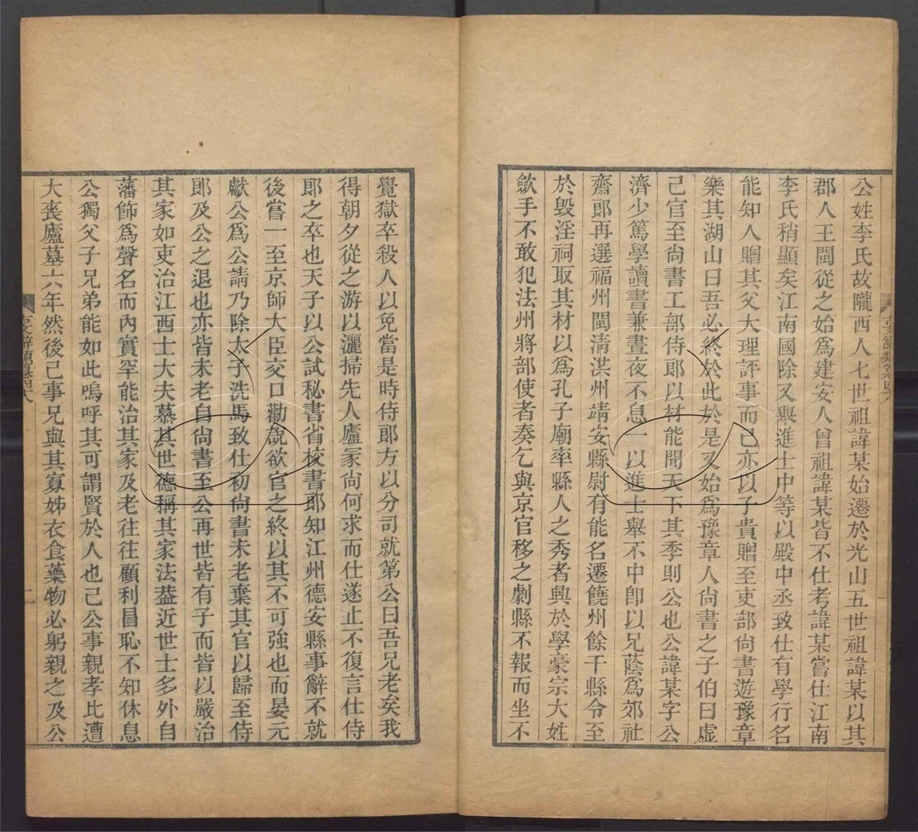 公姓李氏故隴西人七世祖諱某始遷於光山五世祖諱某以其
郡人王閩從之始爲建安人曾祖諱某皆不仕考諱某嘗仕江南
李氏稍顯矣江南國除又舉進士中等以殿中丞致仕有學行名
能知人贈其父大理評事而已亦以子貴贈至吏部尚書遊豫章
樂其湖山曰吾必終於此於是又始爲豫章人尚書之子伯曰虛
己官至尚書工部侍郎以材能聞天下其季則公也公諱某字公
濟少篤學讀書兼晝夜不息一以進士舉不中卽以兄蔭爲郊社
齋郎再選福州閩淸洪州靖安縣尉有能名遷饒州餘干縣令至
於毀淫祠取其材以爲孔子廟率縣人之秀者興於學豪宗大姓
斂手不敢犯法州將部使者奏乞與京官移之劇縣不報而坐不
覺獄卒殺人以免當是時侍郎方以分司就第公曰吾兄老矣我
得朝夕從之游以灑掃先人廬冢尚何求而仕遂止不復言仕侍
郎之卒也天子以公試秘書省校書郎知江州德安縣事辭不就
後嘗一至京師大臣交口勸說欲官之終以其不可強也而晏元
獻公爲公請乃除太子洗馬致仕初尚書未老棄其官以歸至侍
郎及公之退也亦皆未老自尚書至公再世皆有子而皆以嚴治
其家如吏治江西士大夫慕其世德稱其家法葢近世士多外自
藩飾爲聲名而內實罕能治其家及老往往顧利昌恥不知休息
公獨父子兄弟能如此嗚呼其可謂賢於人也已公事親孝比遭
大喪廬墓六年然後已事兄與其寡姊衣食藥物必躬親之及公
二